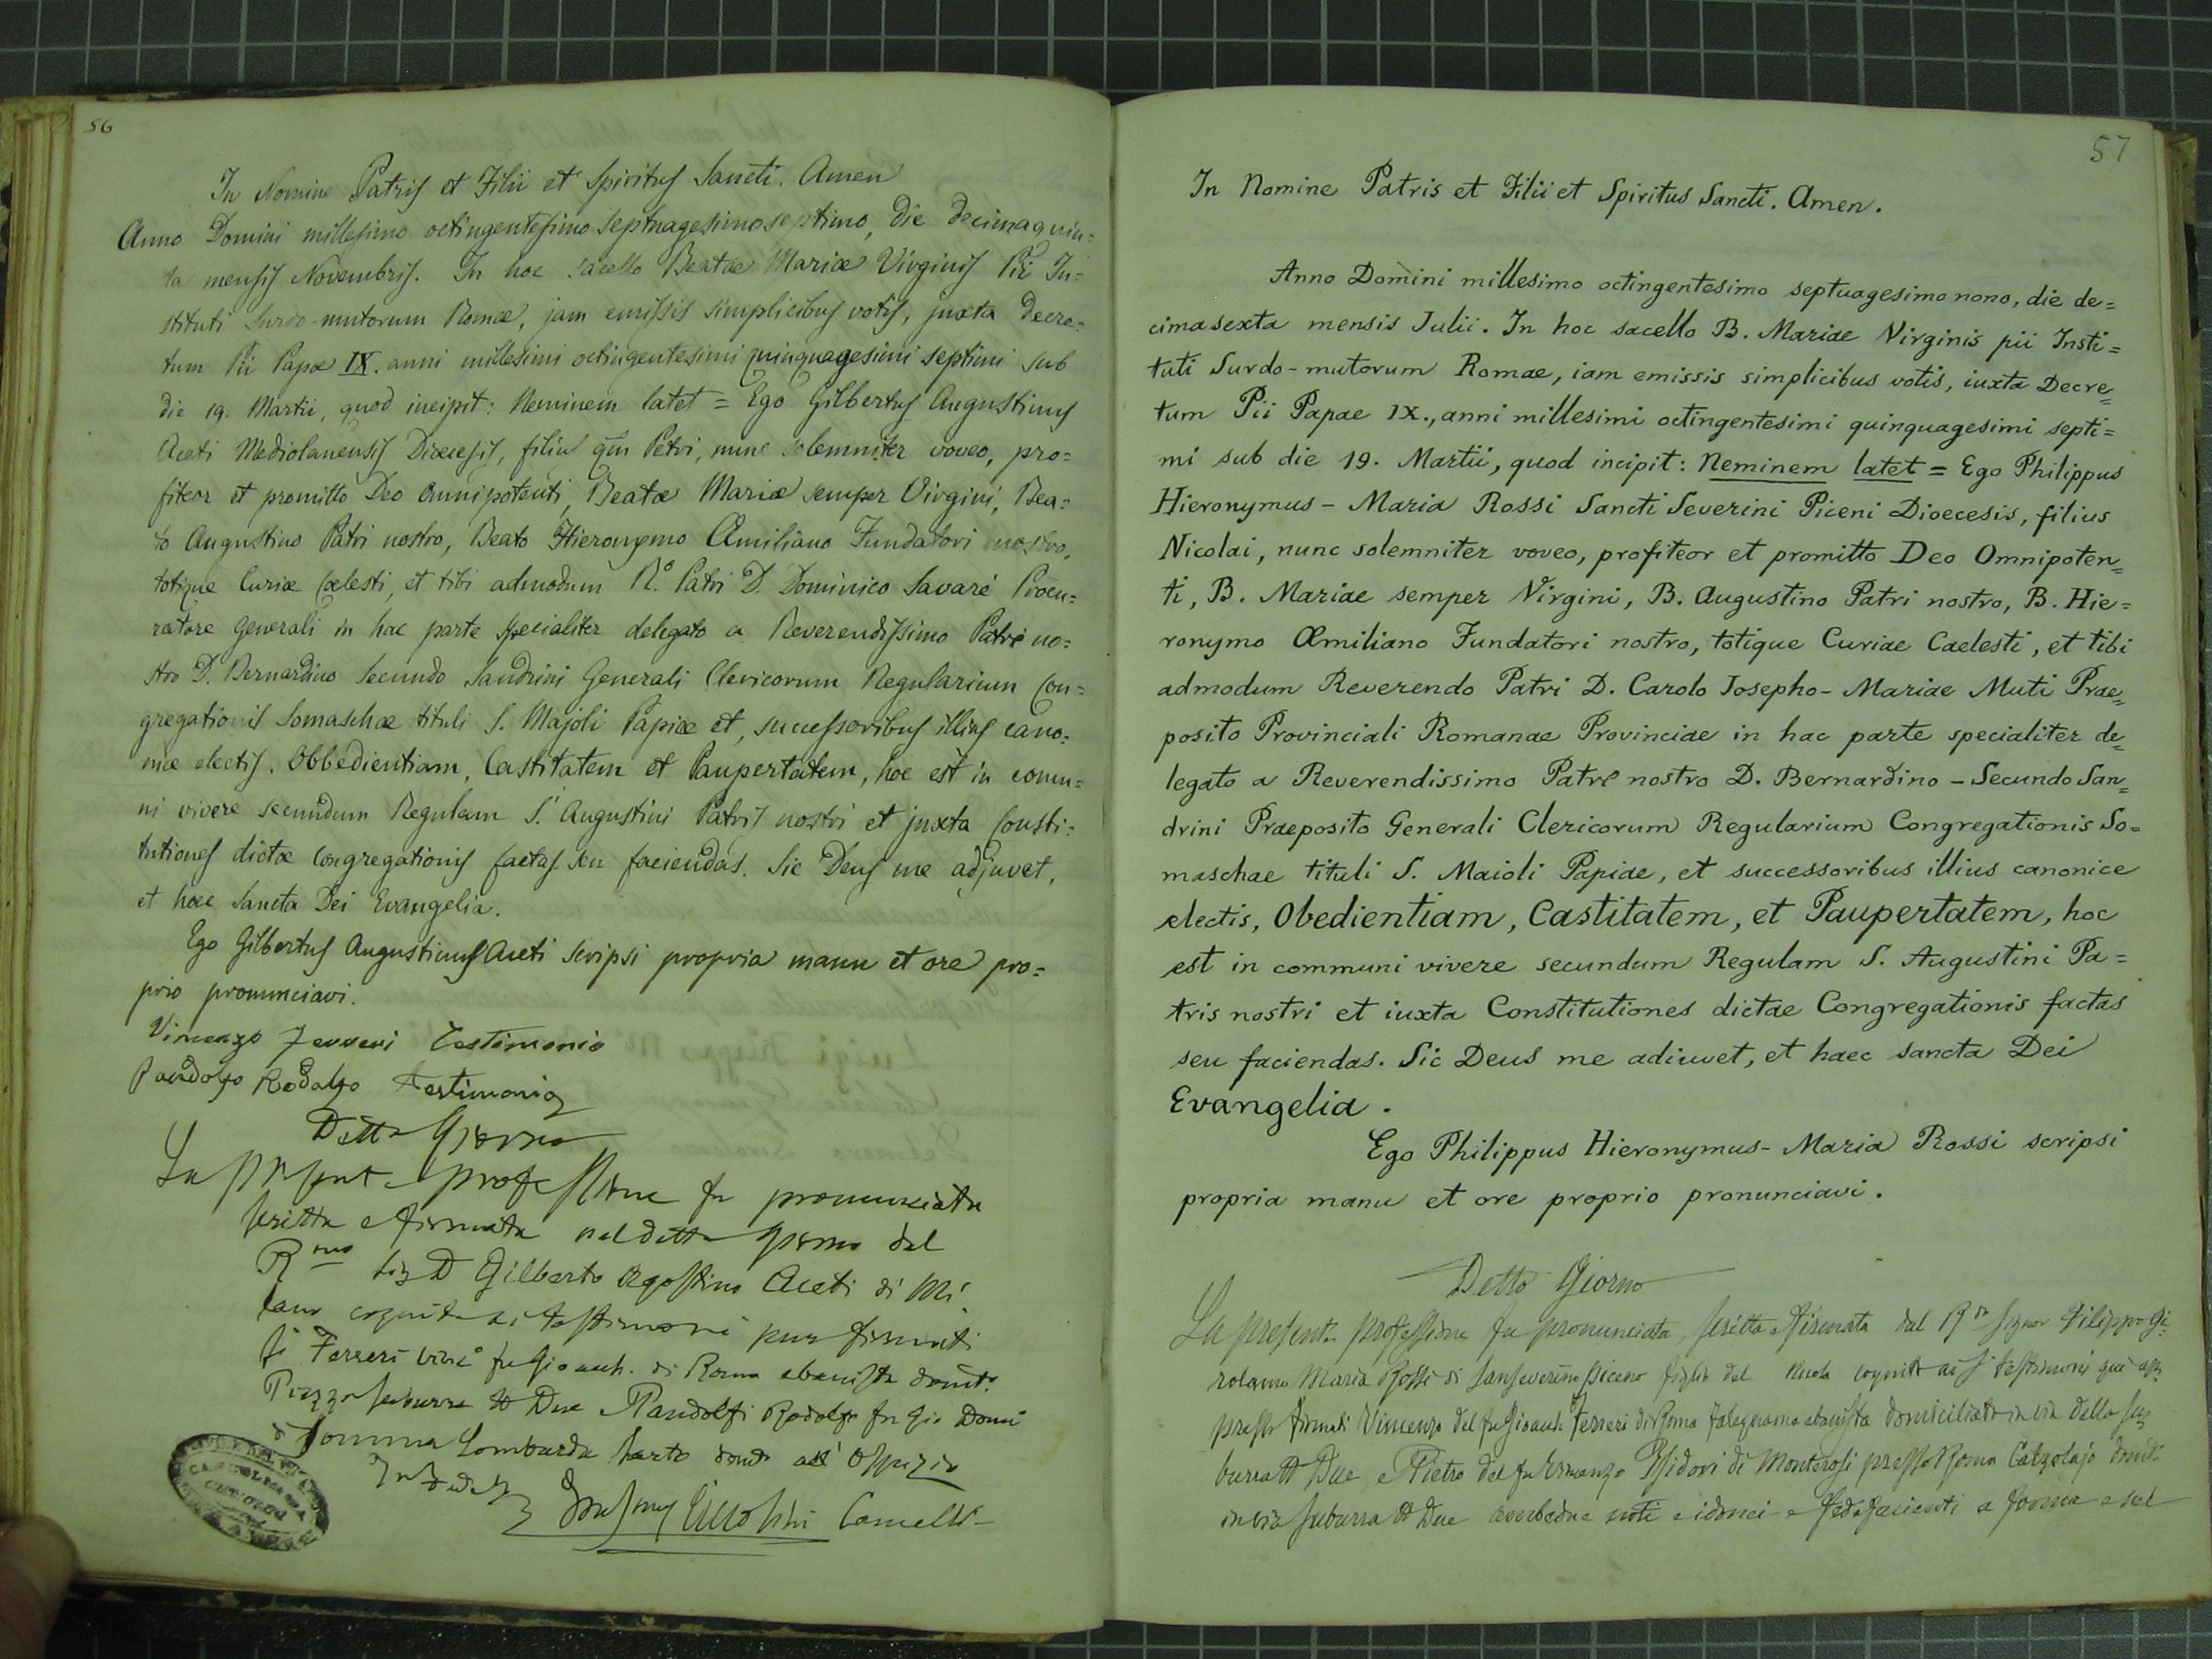 56
In Nomine Patris et Filii et Spiritus Sancti. Amen
Anno Domini millesimo octingentesimo septuagesimoseptimo, die decimaquin=
ta mensis Novembris. In hoc sacello Beatae Mariae Virginis Pii In=
stituti Surdo-mutorum Romae, jam emissis simplicibus votis, juxta Decre=
tum Pii Papae IX. anni millesimi octingentesimi quinquagesimi septimi sub
die 19. Martii, quod incipit: Neminem latet = Ego Gilbertus Augustinus
Aceti Mediolanensis Dioecesis, filius qm Petri, nunc solemniter voveo, pro=
fiteor et promitto Deo Omnipotenti, Beatae Mariae semper Virgini, Bea=
to Augustino Patri nostro, Beato Hieronymo Æmiliano Fundatori nostro,
totique Curiae Coelesti, et tibi admodum R.º Patri D. Dominico Savarè Procu=
ratore generali in hac parte specialiter delegato a Reverendissimo Patre no=
stro D. Bernardino Secundo Sandrini Generali Clericorum Regularium Con=
gregationis Somaschae tituli S. Majoli Papiae et, successoribus illius cano=
nice electis, Obbedientiam, Castitatem et Paupertatem, hoc est in comu=
ni vivere secundum Regulam S. Augustini Patris nostri et juxta Consti=
tutiones dictae Congregationis factas seu faciendas. Sic Deus me adjuvet,
et haec Sancta Dei Evangelia.
Ego Gilbertus Augustinus Aceti scripsi propria manu et ore pro=
prio pronunciavi.
Vincenzo Ferreri Testimonio
Pandolfo Rodolfo Testimonio
Detto Giorno
La presente professione fu pronunciata
scritta e firmata nel detto giorno dal
Rmo Sig D Gilberto Agostino Aceti di Mi
lano cognito ai testimoni pure firmati
Sⁱ Ferreri Vincº fu Gioach. di Roma ebanista domto
Piazza Suburra N Due e Pandolfi Rodolfo fu Gio Domi
di Somma Lombarda Sarto domto all' Ospizio
In Fede
57
In Nomine Patris et Filii et Spiritus Sancti. Amen.
Anno Domini millesimo octingentesimo septuagesimo nono, die de=
cimasexta mensis Iulii. In hoc sacello B. Mariae Virginis pii Insti=
tuti Surdo-mutorum Romae, iam emissis simplicibus votis, iuxta Decre=
tum Pii Papae IX., anni millesimi octingentesimi quinquagesimi septi=
mi sub die 19. Martii, quod incipit: Neminem latet = Ego Philippus
Hieronymus-Maria Rossi Sancti Severini Piceni Dioecesis, filius
Nicolai, nunc solemniter voveo, profiteor et promitto Deo Omnipoten=
ti, B. Mariae semper Virgini, B. Augustino Patri nostro, B. Hie=
ronymo Æmiliano Fundatori nostro, totique Curiae Caelesti, et tibi
admodum Reverendo Patri D. Carolo Iosepho-Mariae Muti Prae=
posito Provinciali Romanae Provinciae in hac parte specialiter de=
legato a Reverendissimo Patre nostro D. Bernardino-Secundo San=
drini Praeposito Generali Clericorum Regularium Congregationis So=
maschae tituli S. Maioli Papiae, et successoribus illius canonice
electis, Obedientiam, Castitatem, et Paupertatem, hoc
est in communi vivere secundum Regulam S. Augustini Pa=
tris nostri et iuxta Constitutiones dictae Congregationis factas
seu faciendas. Sic Deus me adiuvet, et haec sancta Dei
Evangelia.
Ego Philippus Hieronymus-Maria Rossi scripsi
propria manu et ore proprio pronunciavi.
Detto Giorno
La presente professione fu pronunciata, scritta e firmata dal Rdo Signor Filippo Gi=
rolamo Maria Rossi di Sanseverino Piceno figlio del Nicola cognito ai Sⁱ testimoni quì ap=
presso firmati Vincenzo del fu Gioach. Ferreri di Roma Falegname ebanista domiciliato in via della Su=
burra N Due, e Pietro del fu Vincenzo Isidori di Monterosi presso Roma Calzolajo domto
in via Suburra N Due ambedue noti e idonei e fedefacienti a forma e sel